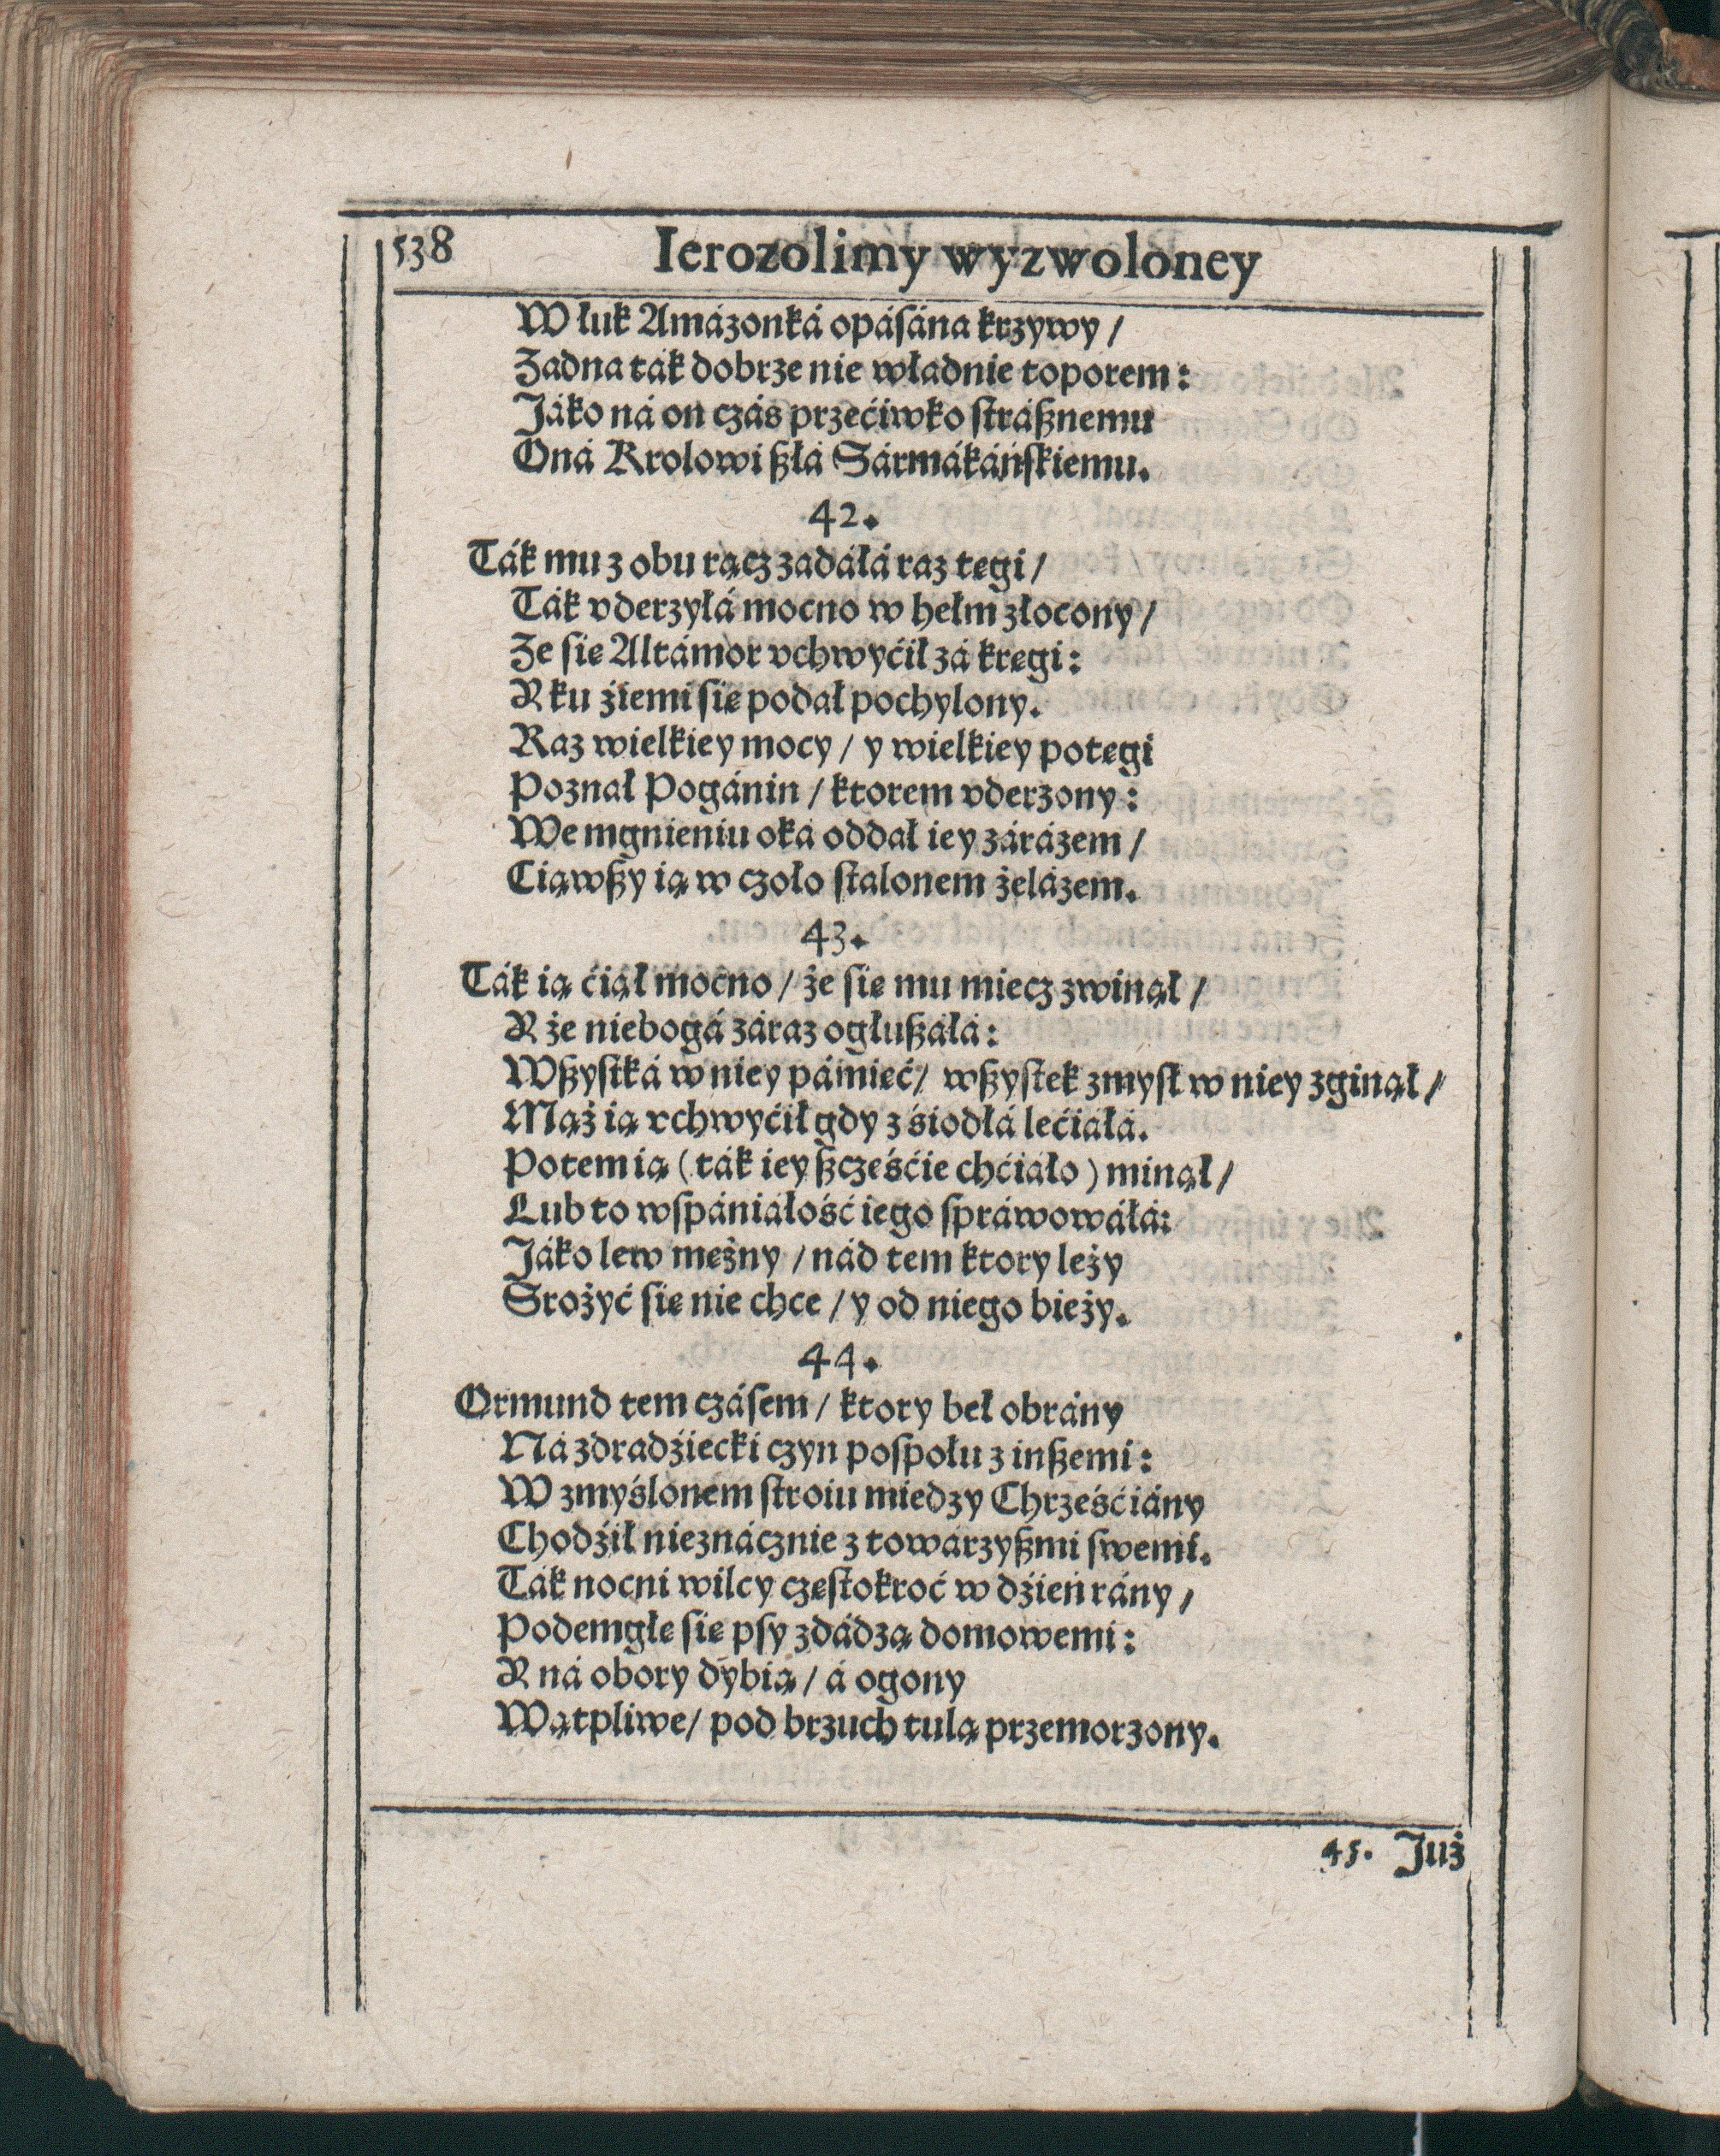 538 Ierozolimy wyzwoloney
W łuk Amázonká opásána krzywy /
Zadna ták dobrze nie władnie toporem:
Jáko ná on czás przećiwko strásznemu
Oná Krolowi szłá Sármákáńskiemu.
42.
Ták mu z obu rącz zadáłá raz tęgi /
Ták vderzyłá mocno w hełm złocony /
Ze się Altámor vchwyćił zá kręgi:
Y ku źiemi się podał pochylony.
Raz wielkiey mocy / y wielkiey potęgi
Poznał Pogánin / ktorem vderzony:
We mgnieniu oká oddał iey zárázem /
Ciąwszy ią w czoło stalonem żelázem.
43.
Ták ią ćiął mocno / że się mu miecz zwinął /
Y że niebogá záraz ogłuszáłá:
Wszystká w niey pámięć / wszystek zmysł w niey zginął /
Mąż ią vchwyćił gdy z śiodłá lećiáłá.
Potem ią (ták iey szczęśćie chćiáło) minął /
Lub to wspániáłość iego spráwowáłá:
Jáko lew mężny / nád tem ktory leży
Srożyć się nie chce / y od niego bieży.
44.
Ormund tem czásem / ktory beł obrány
Ná zdradźiecki czyn pospołu z inszemi:
W zmyślonem stroiu miedzy Chrześćiány
Chodźił nieznácznie z towárzyszmi swemi.
Ták nocni wilcy częstokroć w dźień rány /
Podemgłę się psy zdádzą domowemi:
Y ná obory dybią / á ogony
Wątpliwe / pod brzuch tulą przemorzony.
45. Już